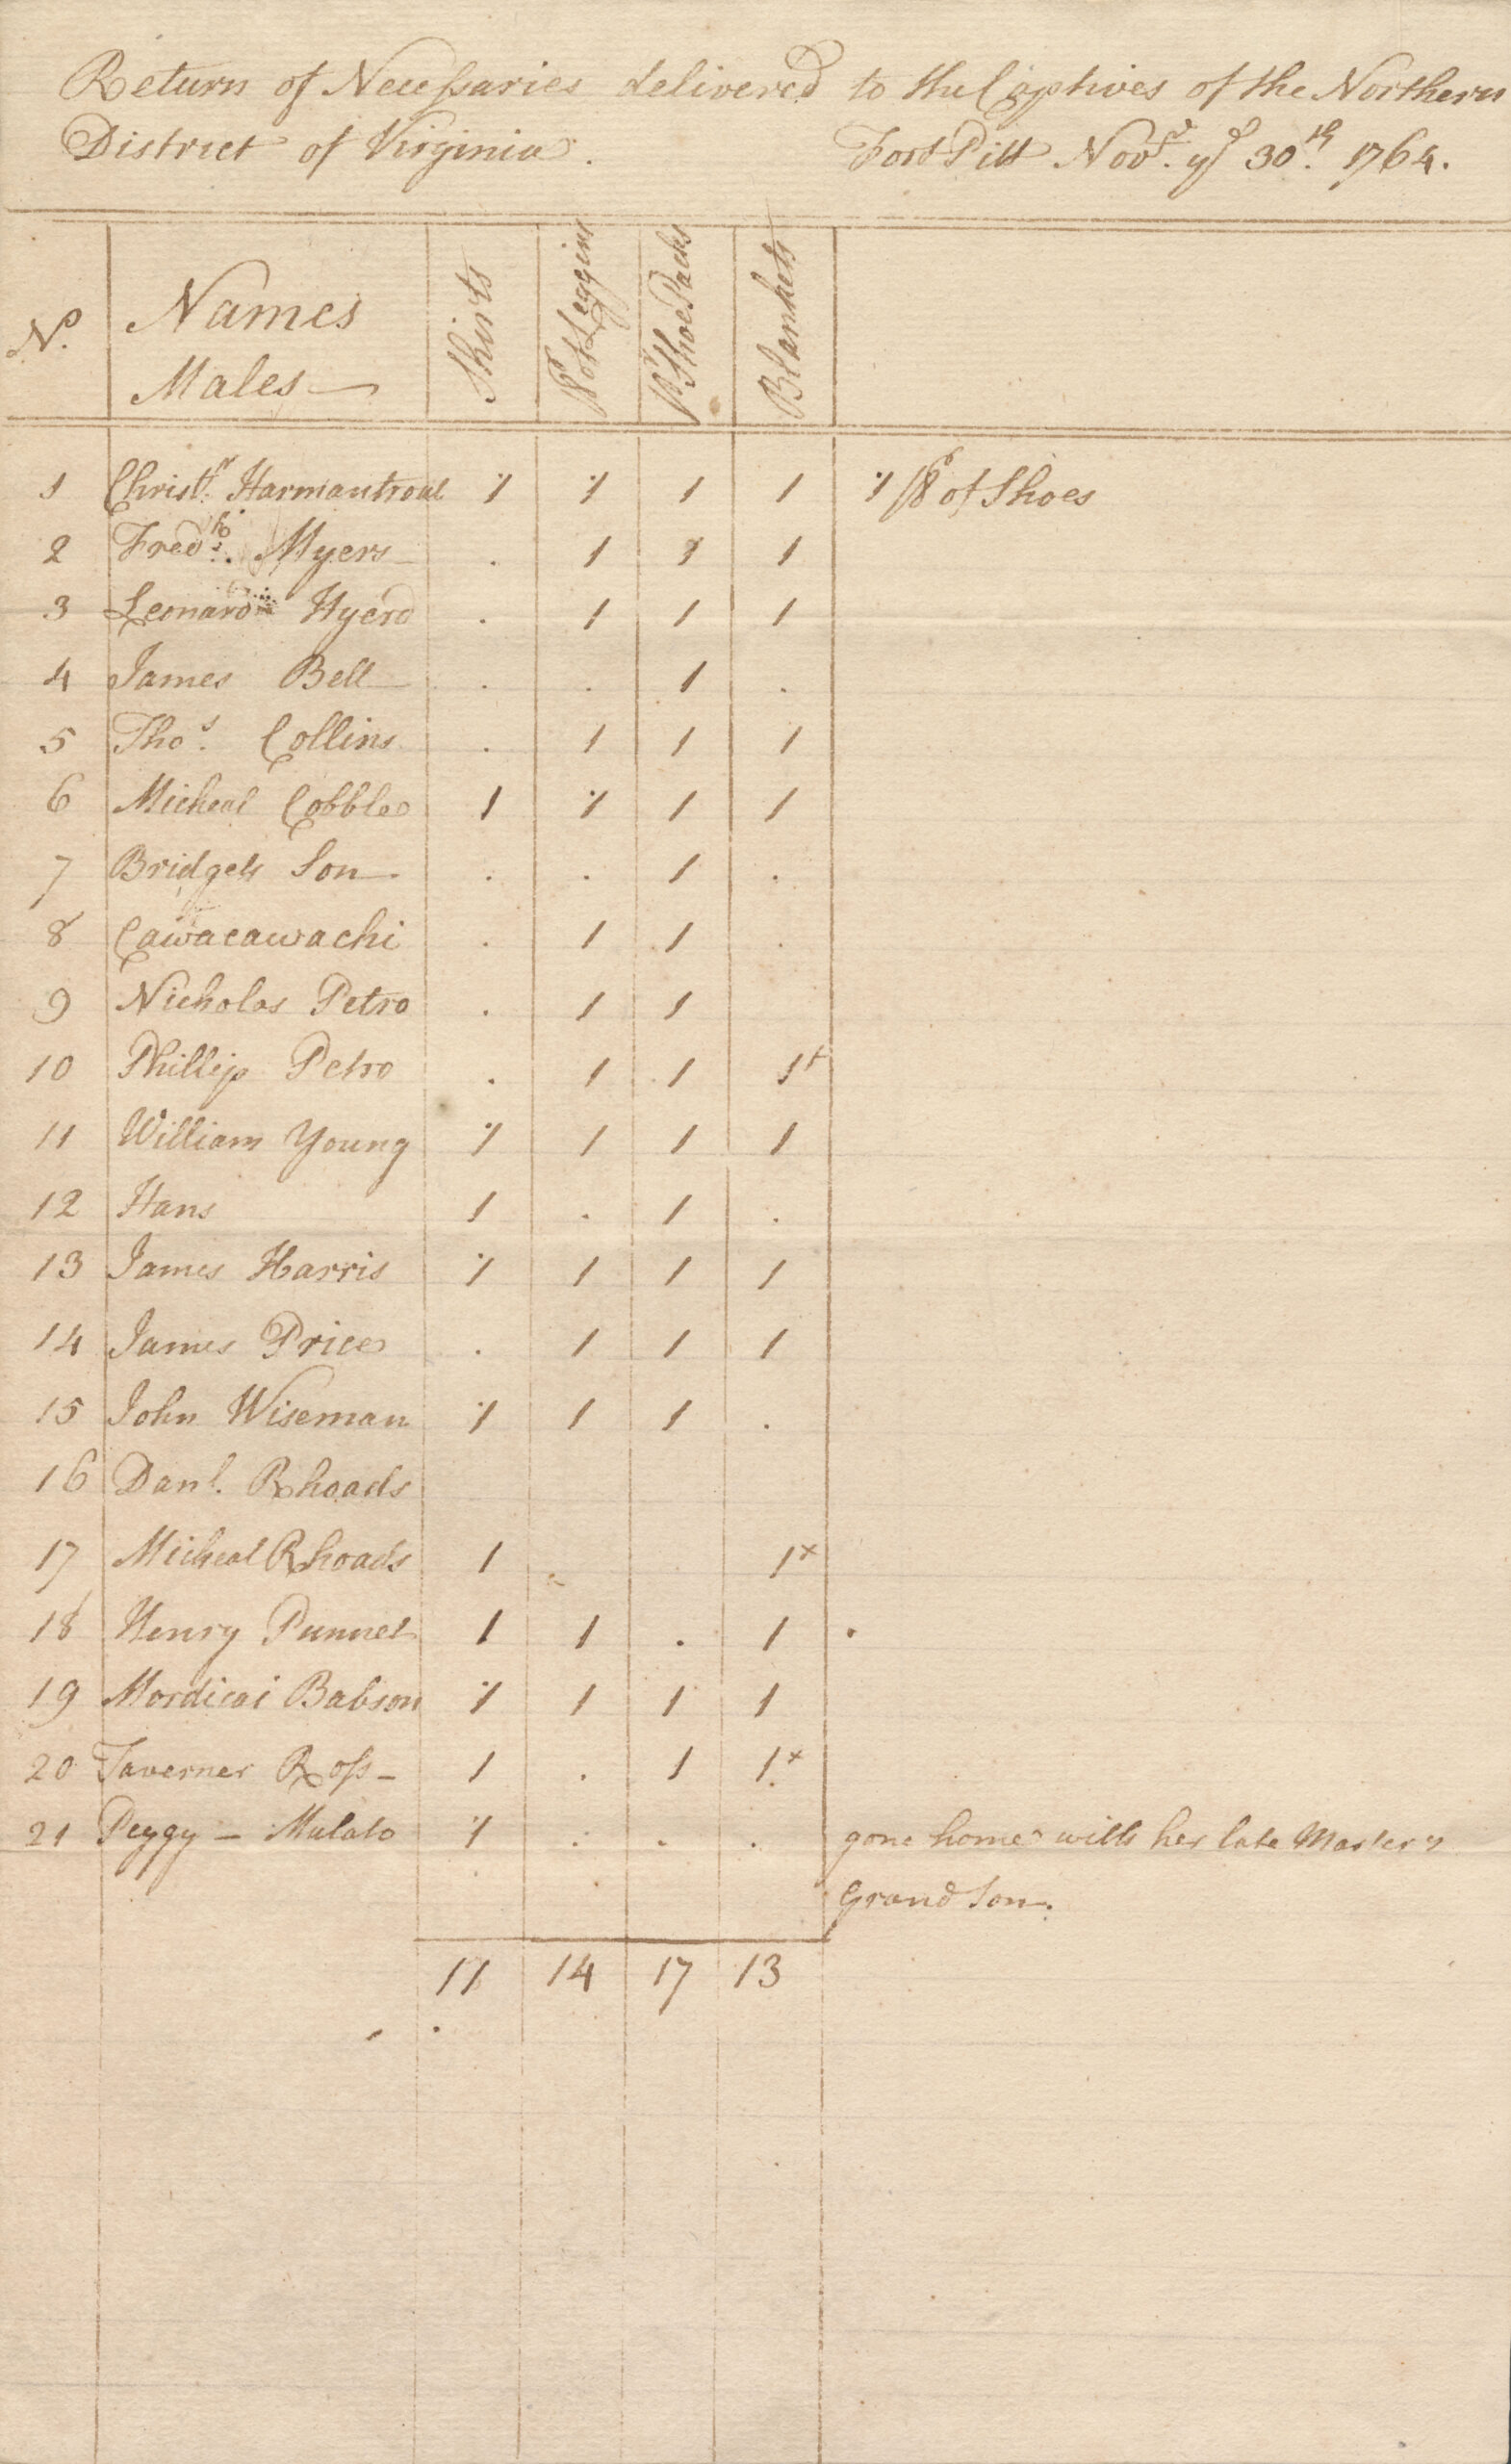 Return of Necessaries delivered to the Captives of the Northern
District of Virginia. Fort Pitt Novr. ye 30th. 1764.
No. Names Males Shirts Pr of Leggins Pr Shoe Packs Blankets
1 Christr. Harmantrout 1 1 1 1 1 Pr of Shoes
2 Fredk. Myers . 1 1 1
3 Leonard Hyerd . 1 1 1
4 James Bell . . 1 .
5 Thos. Collins . 1 1 1
6 Micheal Cobble 1 1 1 1
7 Bridgets Son . . 1 .
8 Cawacawachi . 1 1 .
9 Nicholas Petro . 1 1
10 Phillip Petro . 1 1 1+
11 William Young 1 1 1 1
12 Hans 1 . 1 .
13 James Harris 1 1 1 1
14 James Price . 1 1 1
15 John Wiseman 1 1 1 .
16 Danl. Rhoads
17 Micheal Rhoads 1 1x
18 Henry Punnel 1 1 . 1
19 Mordicai Babson 1 1 1 1
20 Taverner Ross 1 . 1 1x
21 Peggy - Mulato 1 . . . gone home with her late Masters
Grand Son.
11 14 17 13